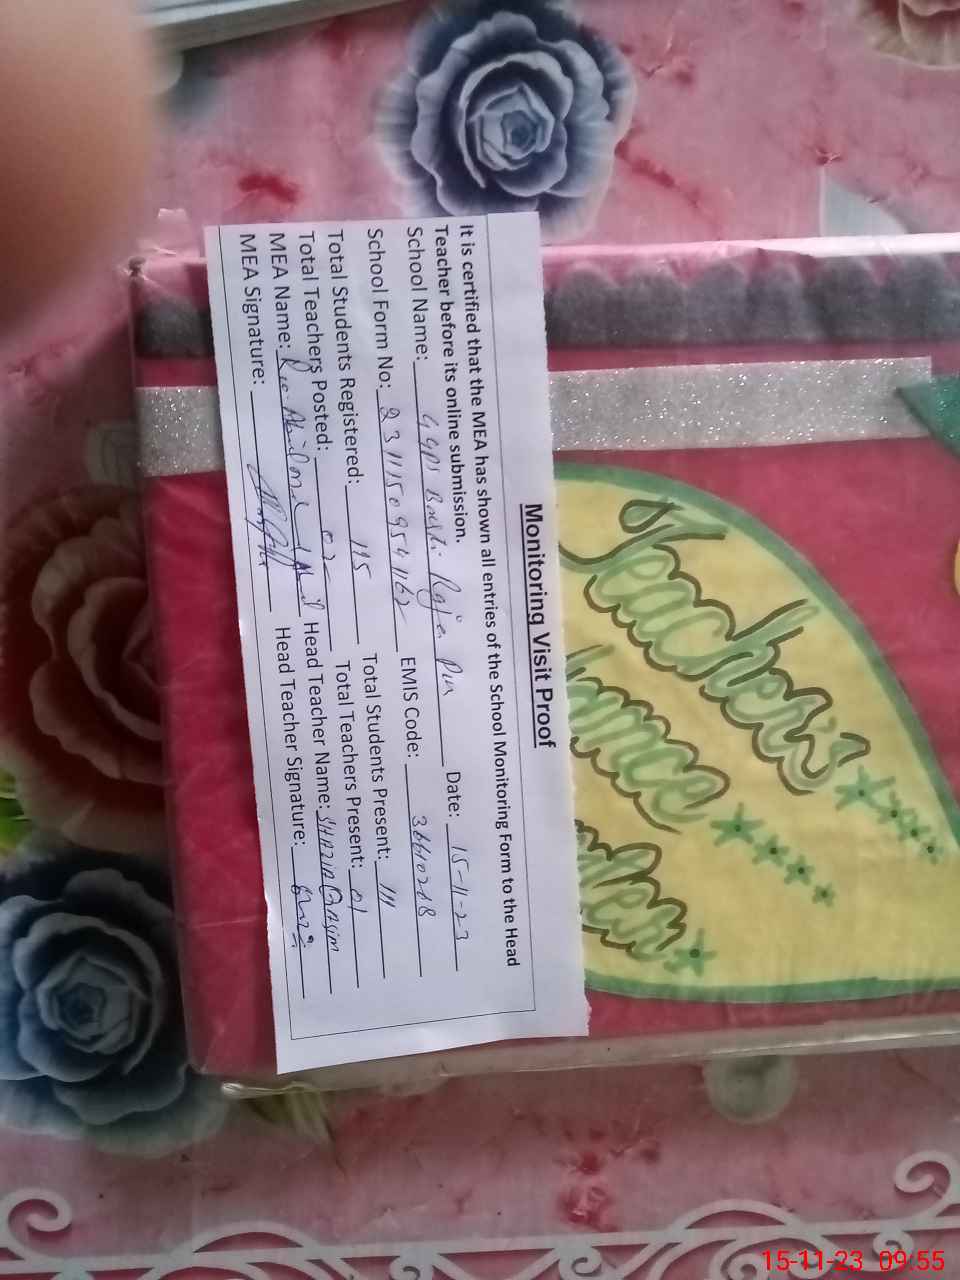 Monitoring Visit Proof
It is certified that the MEA has shown all entries of the School Monitoring Form to the Head
Teacher before its online submission.
School Name: GGPS Date: 15-11-23
School Form No: 2311150954162 EMIS Code: 36610218
Total Students Registered: 115 Total Students Present: 111
Total Teachers Posted: 02 Total Teachers Present: 01
MEA Name: Head Teacher Name: SHAZIA QASIM
MEA Signature: Head Teacher Signature:
Teacher's
15-11-23 09:55